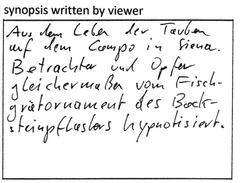 synopsis written by viewer
Aus dem Leben der Tauben
auf dem Campo in Siena.
Betrachter und Opfer
gleichermaßen vom Fisch-
grätornament des Back-
steinpflasters hypnotisiert.